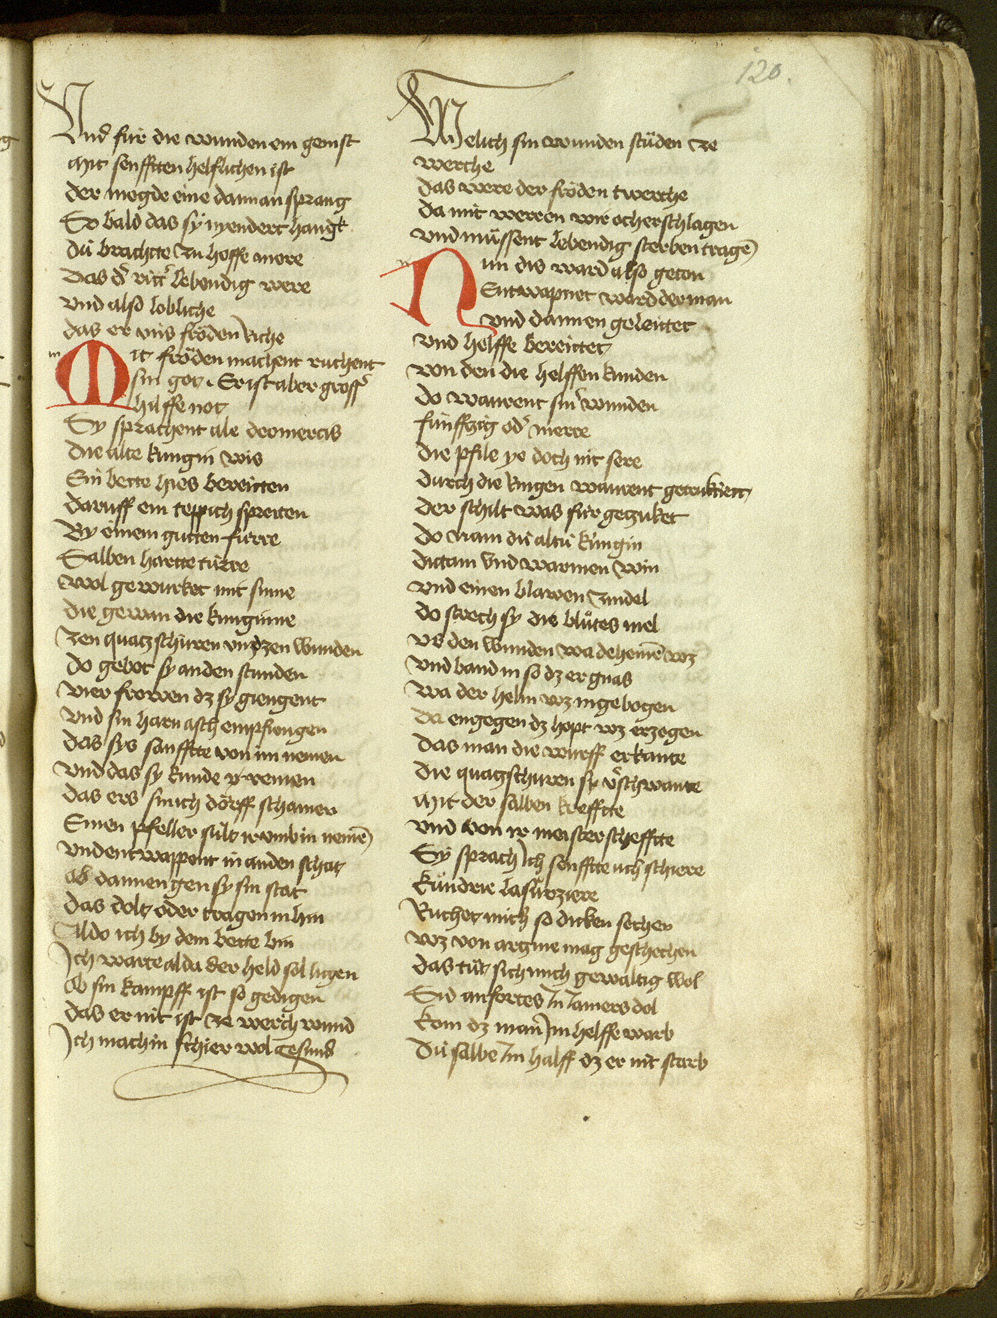 120.
Vnd für die wunden ein genist
Mit senfften helflichen ist
der megde eine dannan sprang
So bald das sy nyendert hangkt
dü brachtte zu hoffe mere
Das d' ritt' lebendig were
vnd also lobliche
das er vns fröden riche
Mit fröden machent ruchent
sin got . Er ist aber gross'
hilffe not
Sy sprachent ale deomercis
Die alte küngin wis
Ein bette hies bereitten
daruff ein teppich spreiten
By einem gutten furre
Salben hartte türre
Wol gewürket mit sinne
die gewan die kunginne
Zen quatzschüren vnd zen wunden
do gebot sy an den stunden
vier frowen dz sy giengent
vnd sin harnasch empfiengen
das sys sanfftte von im nemen
vnd das sy kunde v̈remen
das ers sinich dörff schamen
Einen pfeller sült ir vmb in nemē
vnd entwappent in an den schat
ob dannen gen sy sin stat
das dolt oder tragen in hin
Aldo ich by dem bette bin
Ich warte alda der held sol ligen
Ob sin kampff ist so gedigen
das er nit ist ze werch wund
Ich mach in schier wol gesund
Welich sin wunden stüden ze
werche
das were der fröden twerche
da mit weren wir och erschlagen
vnd müssent lebendig sterben tragē
Nun dis ward also geton
Entwapnet ward der man
vnd dannen geleittet
vnd helffe bereittet
von den die helffen kunden
do waurent sin' wunden
fünffzig od' merre
die pfile ye doch nit sere
durch die ringen waurent getruktett
der schilt was für gezuket
do nam dü altü küngin
dictam vnd warmen win
vnd einen blawen zindel
do swech sy die blůtes mel
vs den wunden wa deheinē wz
vnd band in so dz er gnas
wa der helm wz in gebogen
da engegen dz hopt wz erzogen
das man die wurff erkante
die quagschuren sy v̓schwante
Mit der salben kreffte
vnd von ir meisterscheffte
Sy sprach ich senffte uch schiere
kündrie lasurziere
Ruchet mich so dicken sechen
wz von artzine mag geschechen
das tůt sich mich gewaltig wol
Sid anfortes in iamers dol
kom dz man im helffe warb
Dü salbe im halff dz er nit starb